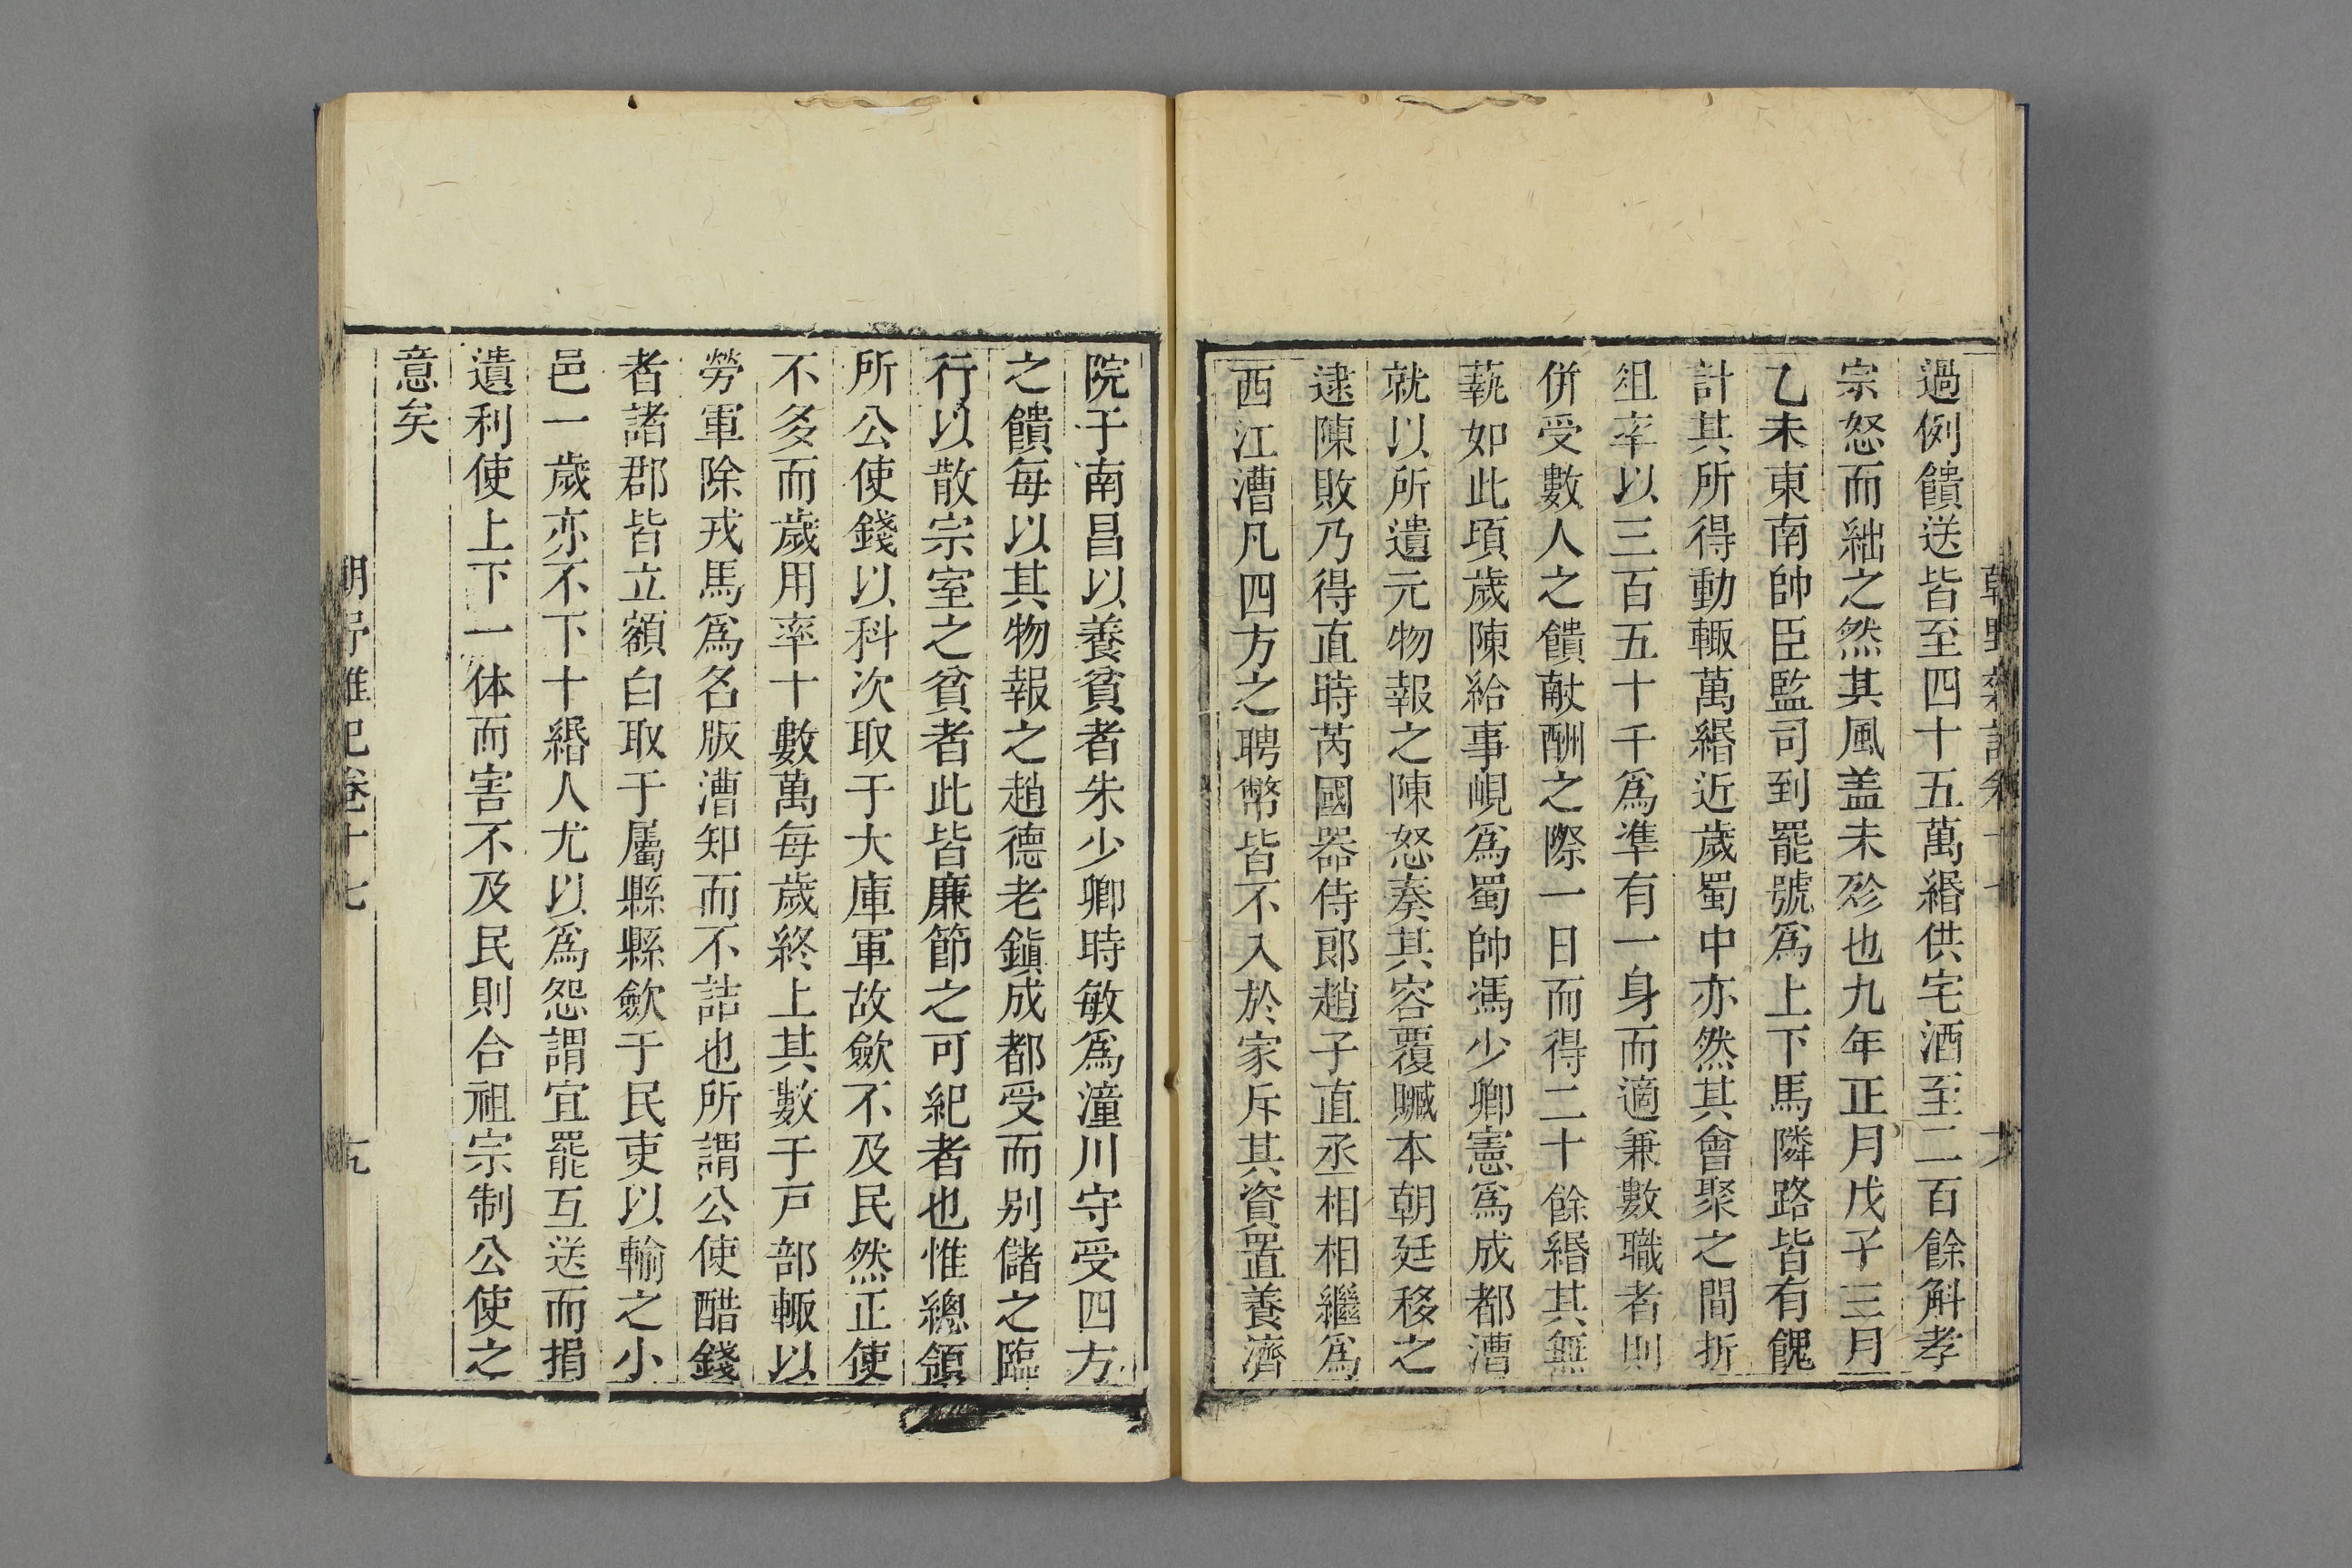 過例饋送皆至四十五萬緡供宅酒至二百餘斛孝
宗怒而絀之然其風盖未殄也九年正月戊子三月
乙未東南帥臣監司到罷號爲上下馬隣路皆有餽
計其所得動輙萬緡近歲蜀中亦然其會聚之間折
俎率以三百五十千爲凖有一身而適兼數職者則
併受數人之饋献酬之際一日而得二十餘緡其無
蓺如此項歲陳給事峴爲蜀帥馮少卿憲爲成都漕
就以所遺元物報之陳怒奏其容覆贓本朝廷移之
逮陳敗乃得直時芮國器侍郎趙子直丞相相繼爲
西江漕凡四方之聘幣皆不入於家斥其資置養濟
院于南昌以養貧者朱少卿時敏爲潼川守受四方
之饋每以其物報之趙德老鎭成都受而别儲之臨
行以散宗室之貧者此皆廉節之可紀者也惟總領
所公使錢以科次取于大庫軍故歛不及民然正使
不多而歲用率十數萬每歲終上其數于戸部輙以
勞軍除戎馬爲名版漕知而不詰也所謂公使醋錢
者諸郡皆立額白取于屬縣縣歛于民吏以輸之小
邑一歲亦不下十緡人尤以爲怨謂宜罷互送而捐
遺利使上下一体而害不及民則合祖宗制公使之
意矣
朝野雜記卷十七